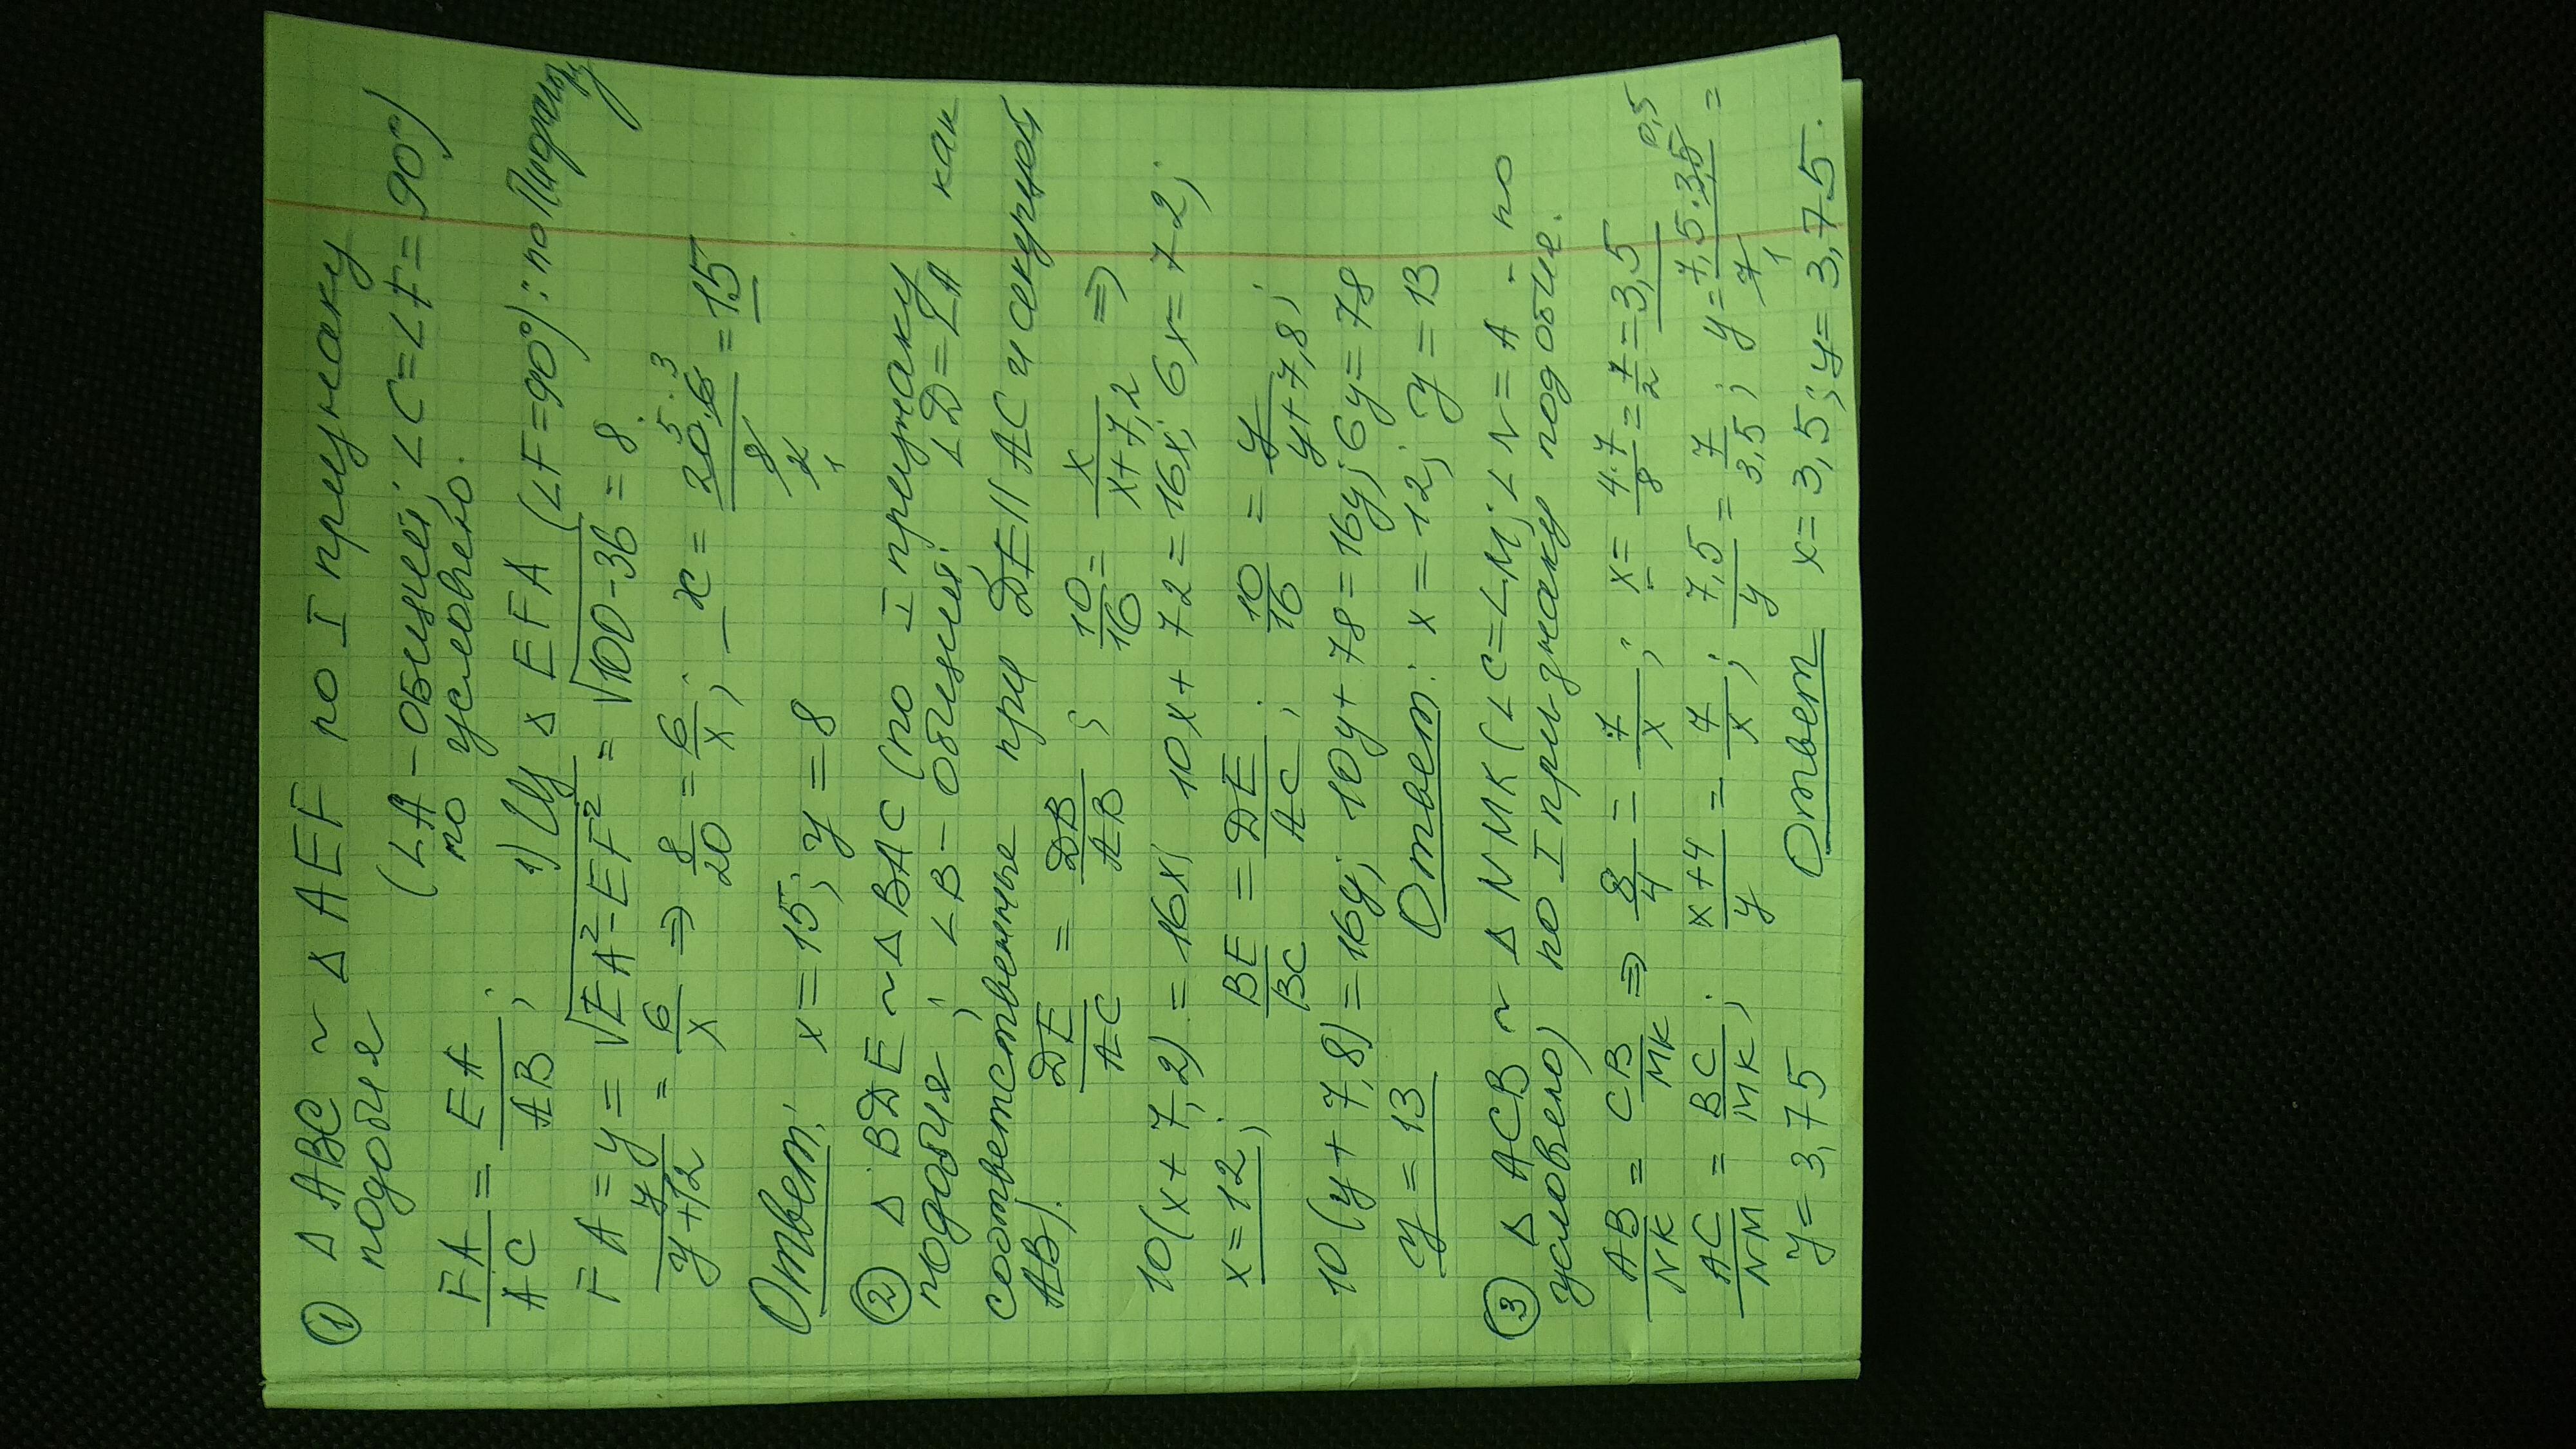 ① Δ ABC ~ Δ AEF по I признаку
подобия (∠A - общий; ∠C = ∠F = 90°)
по условию.
FA/AC = EA/AB; 1) Из Δ EFA (∠F = 90°): по Пифагору
FA = y = √(EA² - EF²) = √(100 - 36) = 8
y/(y+12) = 6/x ⇒ 8/20 = 6/x; x = 20·6/8 = 15
Ответ: x = 15; y = 8
② Δ BDE ~ Δ BAC (по I признаку
подобия, ∠B - общий; ∠D = ∠A как
соответственные при DE || AC и секущей
AB).
DE/AC = DB/AB; 10/16 = x/(x+7,2) ⇒
10(x + 7,2) = 16x; 10x + 72 = 16x; 6x = 72;
x = 12; BE/BC = DE/AC; 10/16 = y/(y+7,8);
10(y + 7,8) = 16y; 10y + 78 = 16y; 6y = 78
y = 13 Ответ: x = 12; y = 13
③ Δ ACB ~ Δ NMK (∠C = ∠M; ∠N = A - по
условию) по I признаку подобие.
AB/NK = CB/MK ⇒ 8/4 = 7/x; x = 4·7/8 = 7/2 = 3,5
AC/NM = BC/MK; x+4/y = 7/x; 7,5/y = 7/3,5; y = 7,5·3,5/7 =
y = 3,75 Ответ x = 3,5; y = 3,75.